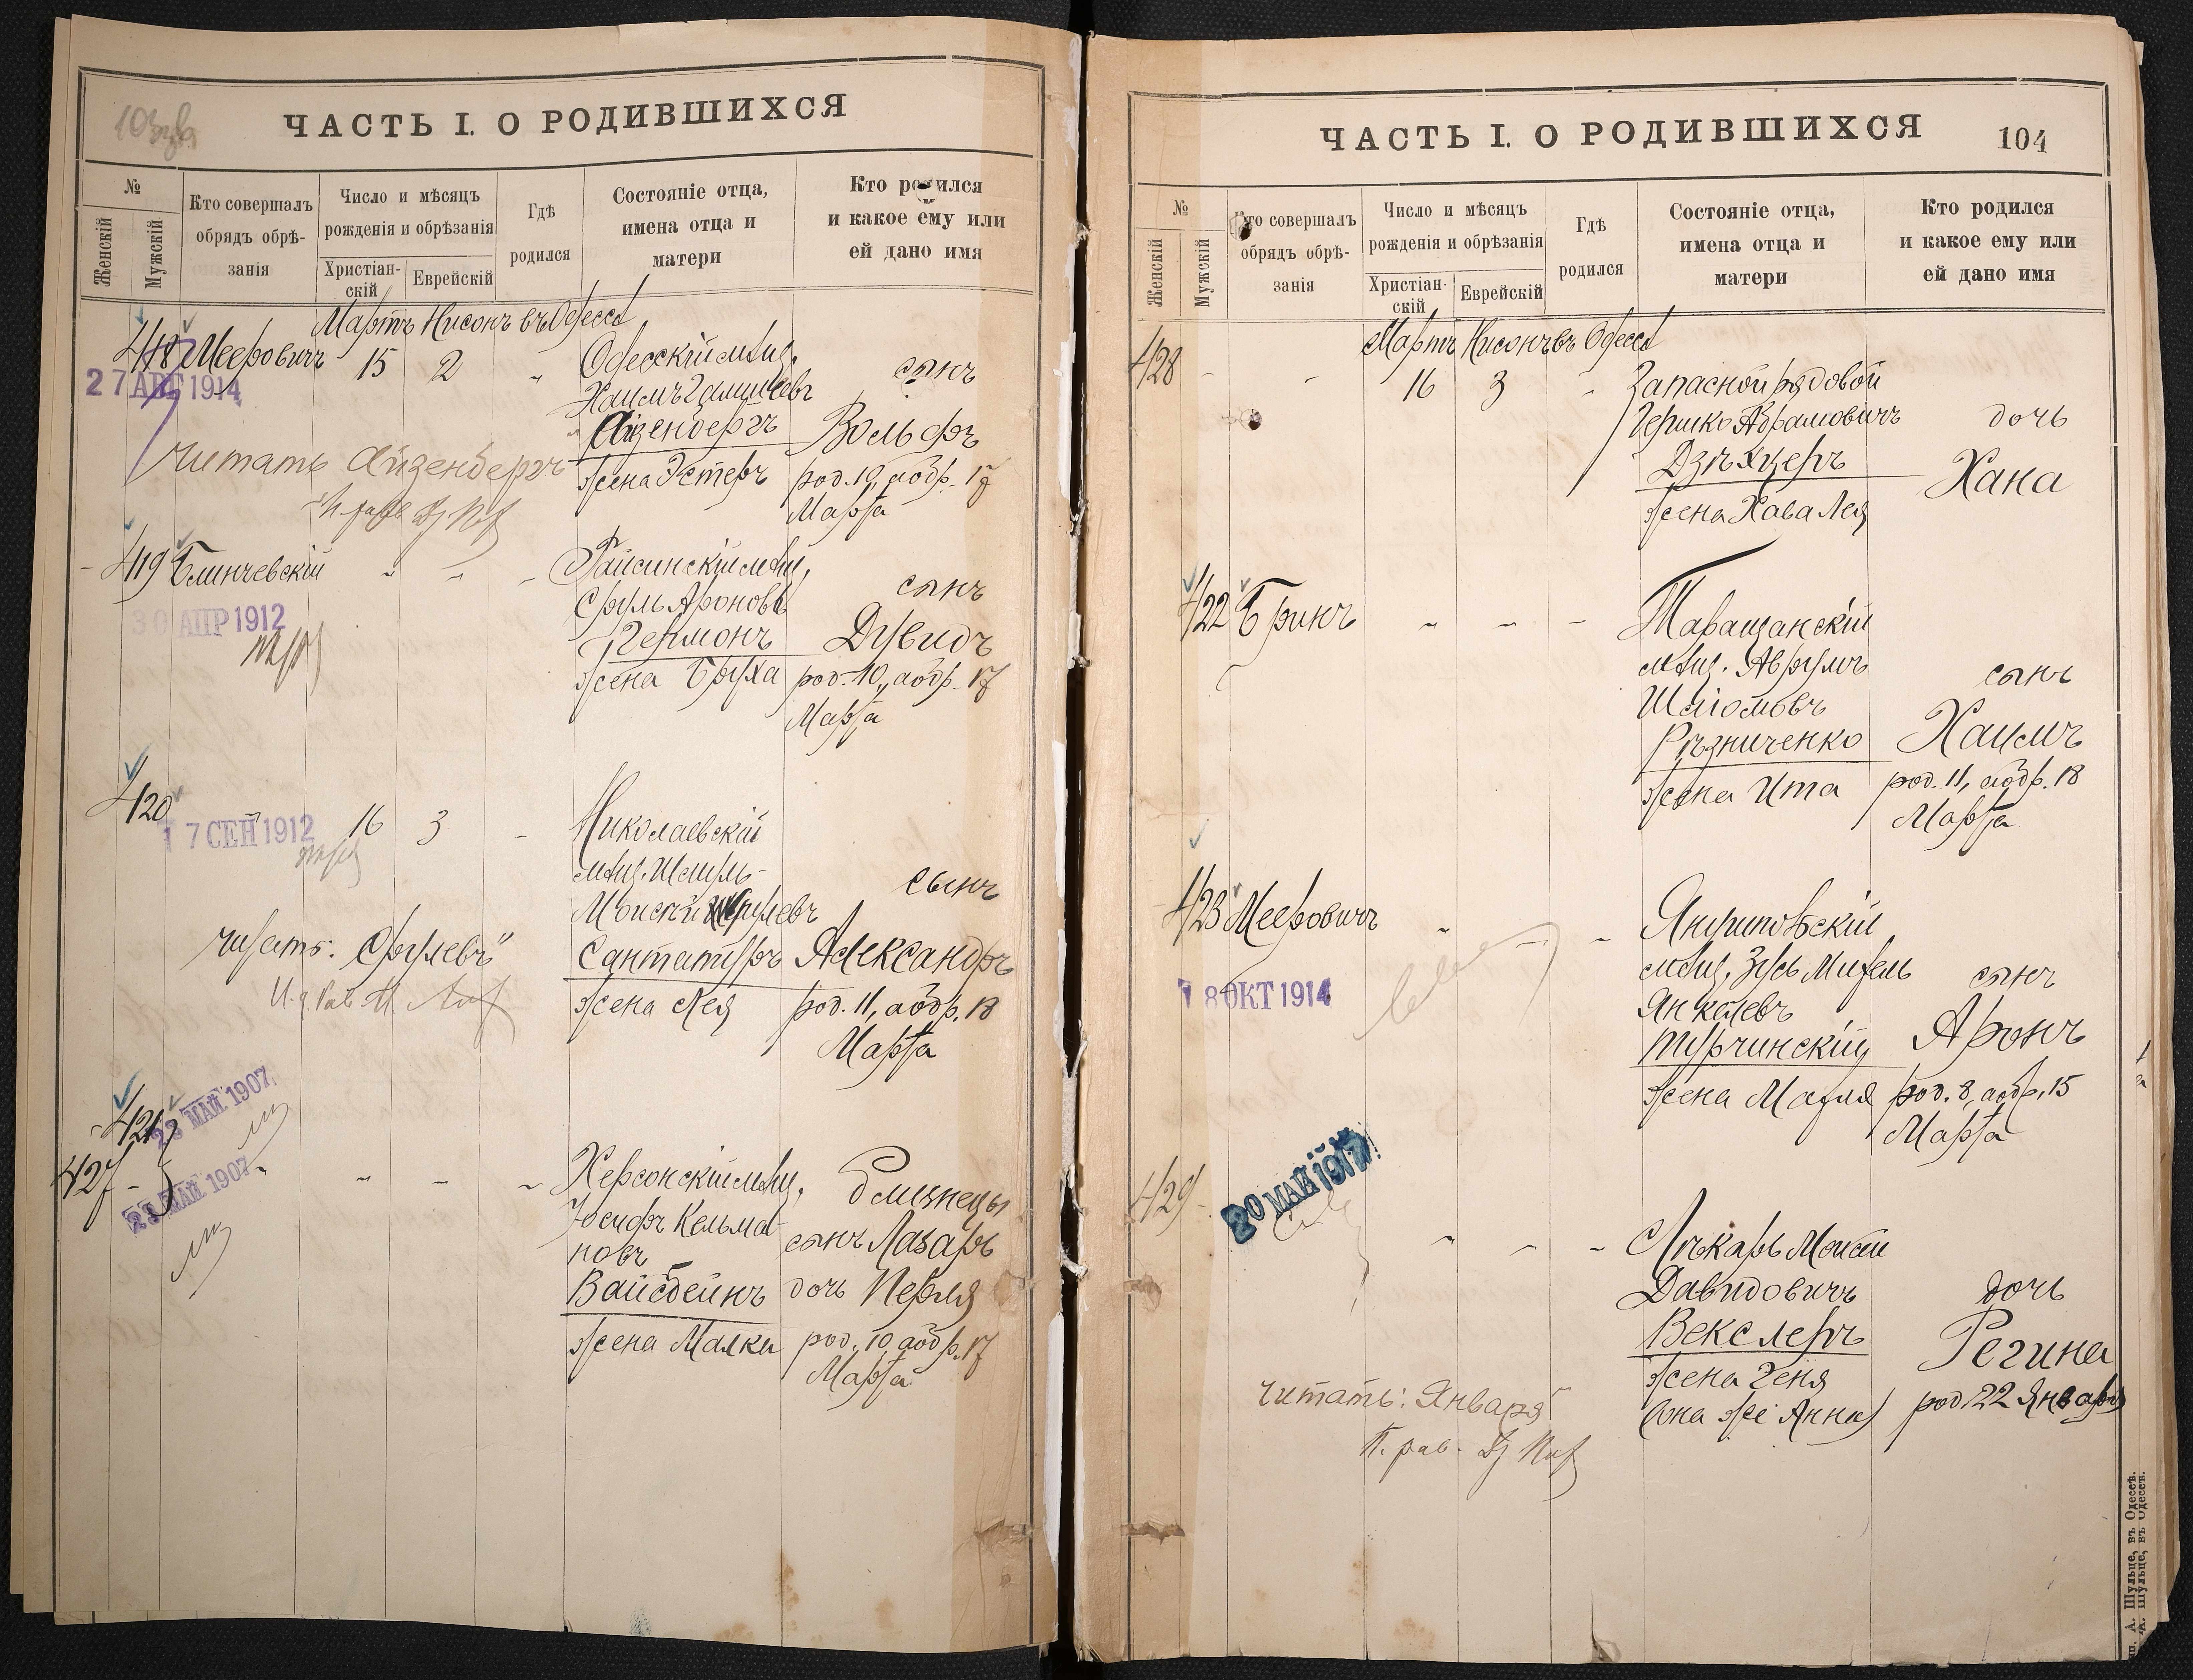 ЧАСТЬ I. О РОДИВШИХСЯ
№
Женскій
Мужскій
Кто совершалъ
обрядъ обрѣ-
занія
Число и мѣсяцъ
рожденія и обрѣзанія
Христіан-
скій
Еврейскій
Гдѣ
родился
Состояніе отца,
имена отца и
матери
Кто родился
и какое ему или
ей дано имя
Мартъ Нисонъ въ Одессѣ
418 Мееровичъ 15 2 " Одесскій мѣщ.
27 АПР 1914
Хаимъ
сынъ
Айзенбергъ Вольфъ
жена Эстеръ род. 10, а обр. 17
Марта
читать Айзенбергъ
419 Блинчевскій " " " Гайсинскій мѣщ.
Сруль Ароновъ сынъ
30 АПР 1912
Германъ Дувидъ
жена Бруха род. 10, а обр. 17
Марта
420 " 16 3 " Николаевскій
17 СЕН 1912
мѣщ. Шмуль-
сынъ
Моисей Срулевъ
читать: Срулевъ"
Сантатуръ Александръ
жена Лея род. 11, а обр. 18
Марта
421
23 МАЙ 1907
427 - " " " " Херсонскій мѣщ. близнецы
23 МАЙ 1907
Іосифъ Кельма-
новъ сынъ Лазарь
Вайсбейнъ дочь Перля
жена Малка род. 10 а обр. 17
Марта
ЧАСТЬ I. О РОДИВШИХСЯ
104
№
Женскій
Мужскій
Кто совершалъ
обрядъ обрѣ-
занія
Число и мѣсяцъ
рожденія и обрѣзанія
Христіан-
скій
Еврейскій
Гдѣ
родился
Состояніе отца,
имена отца и
матери
Кто родился
и какое ему или
ей дано имя
Мартъ Нисонъ въ Одессѣ
428 - " 16 3 " Запасной рядовой
Гершко Абрамовичъ дочь
Хана
жена Хава Лея
422 Бринъ " " " Таращанскій
мѣщ. Аврумъ
Шліомовъ сынъ
Рѣзниченко Хаимъ
жена Ита род. 11, а обр. 18
Марта
423 Мееровичъ " " " Янушпольскій
18 ОКТ 1914
мѣщ. Зусь Михель сынъ
Янкелевъ
Турчинскій Аронъ
жена Махля род. 8, а обр. 15
Марта
429 -
20 МАЙ 1917
" " " Лѣкарь Моисей
Давидовичъ дочь
Векслеръ Регина
жена Геня
(она же Анна) род. 22 Января
читать: Января"
П. А. Шульце, въ Одессѣ.